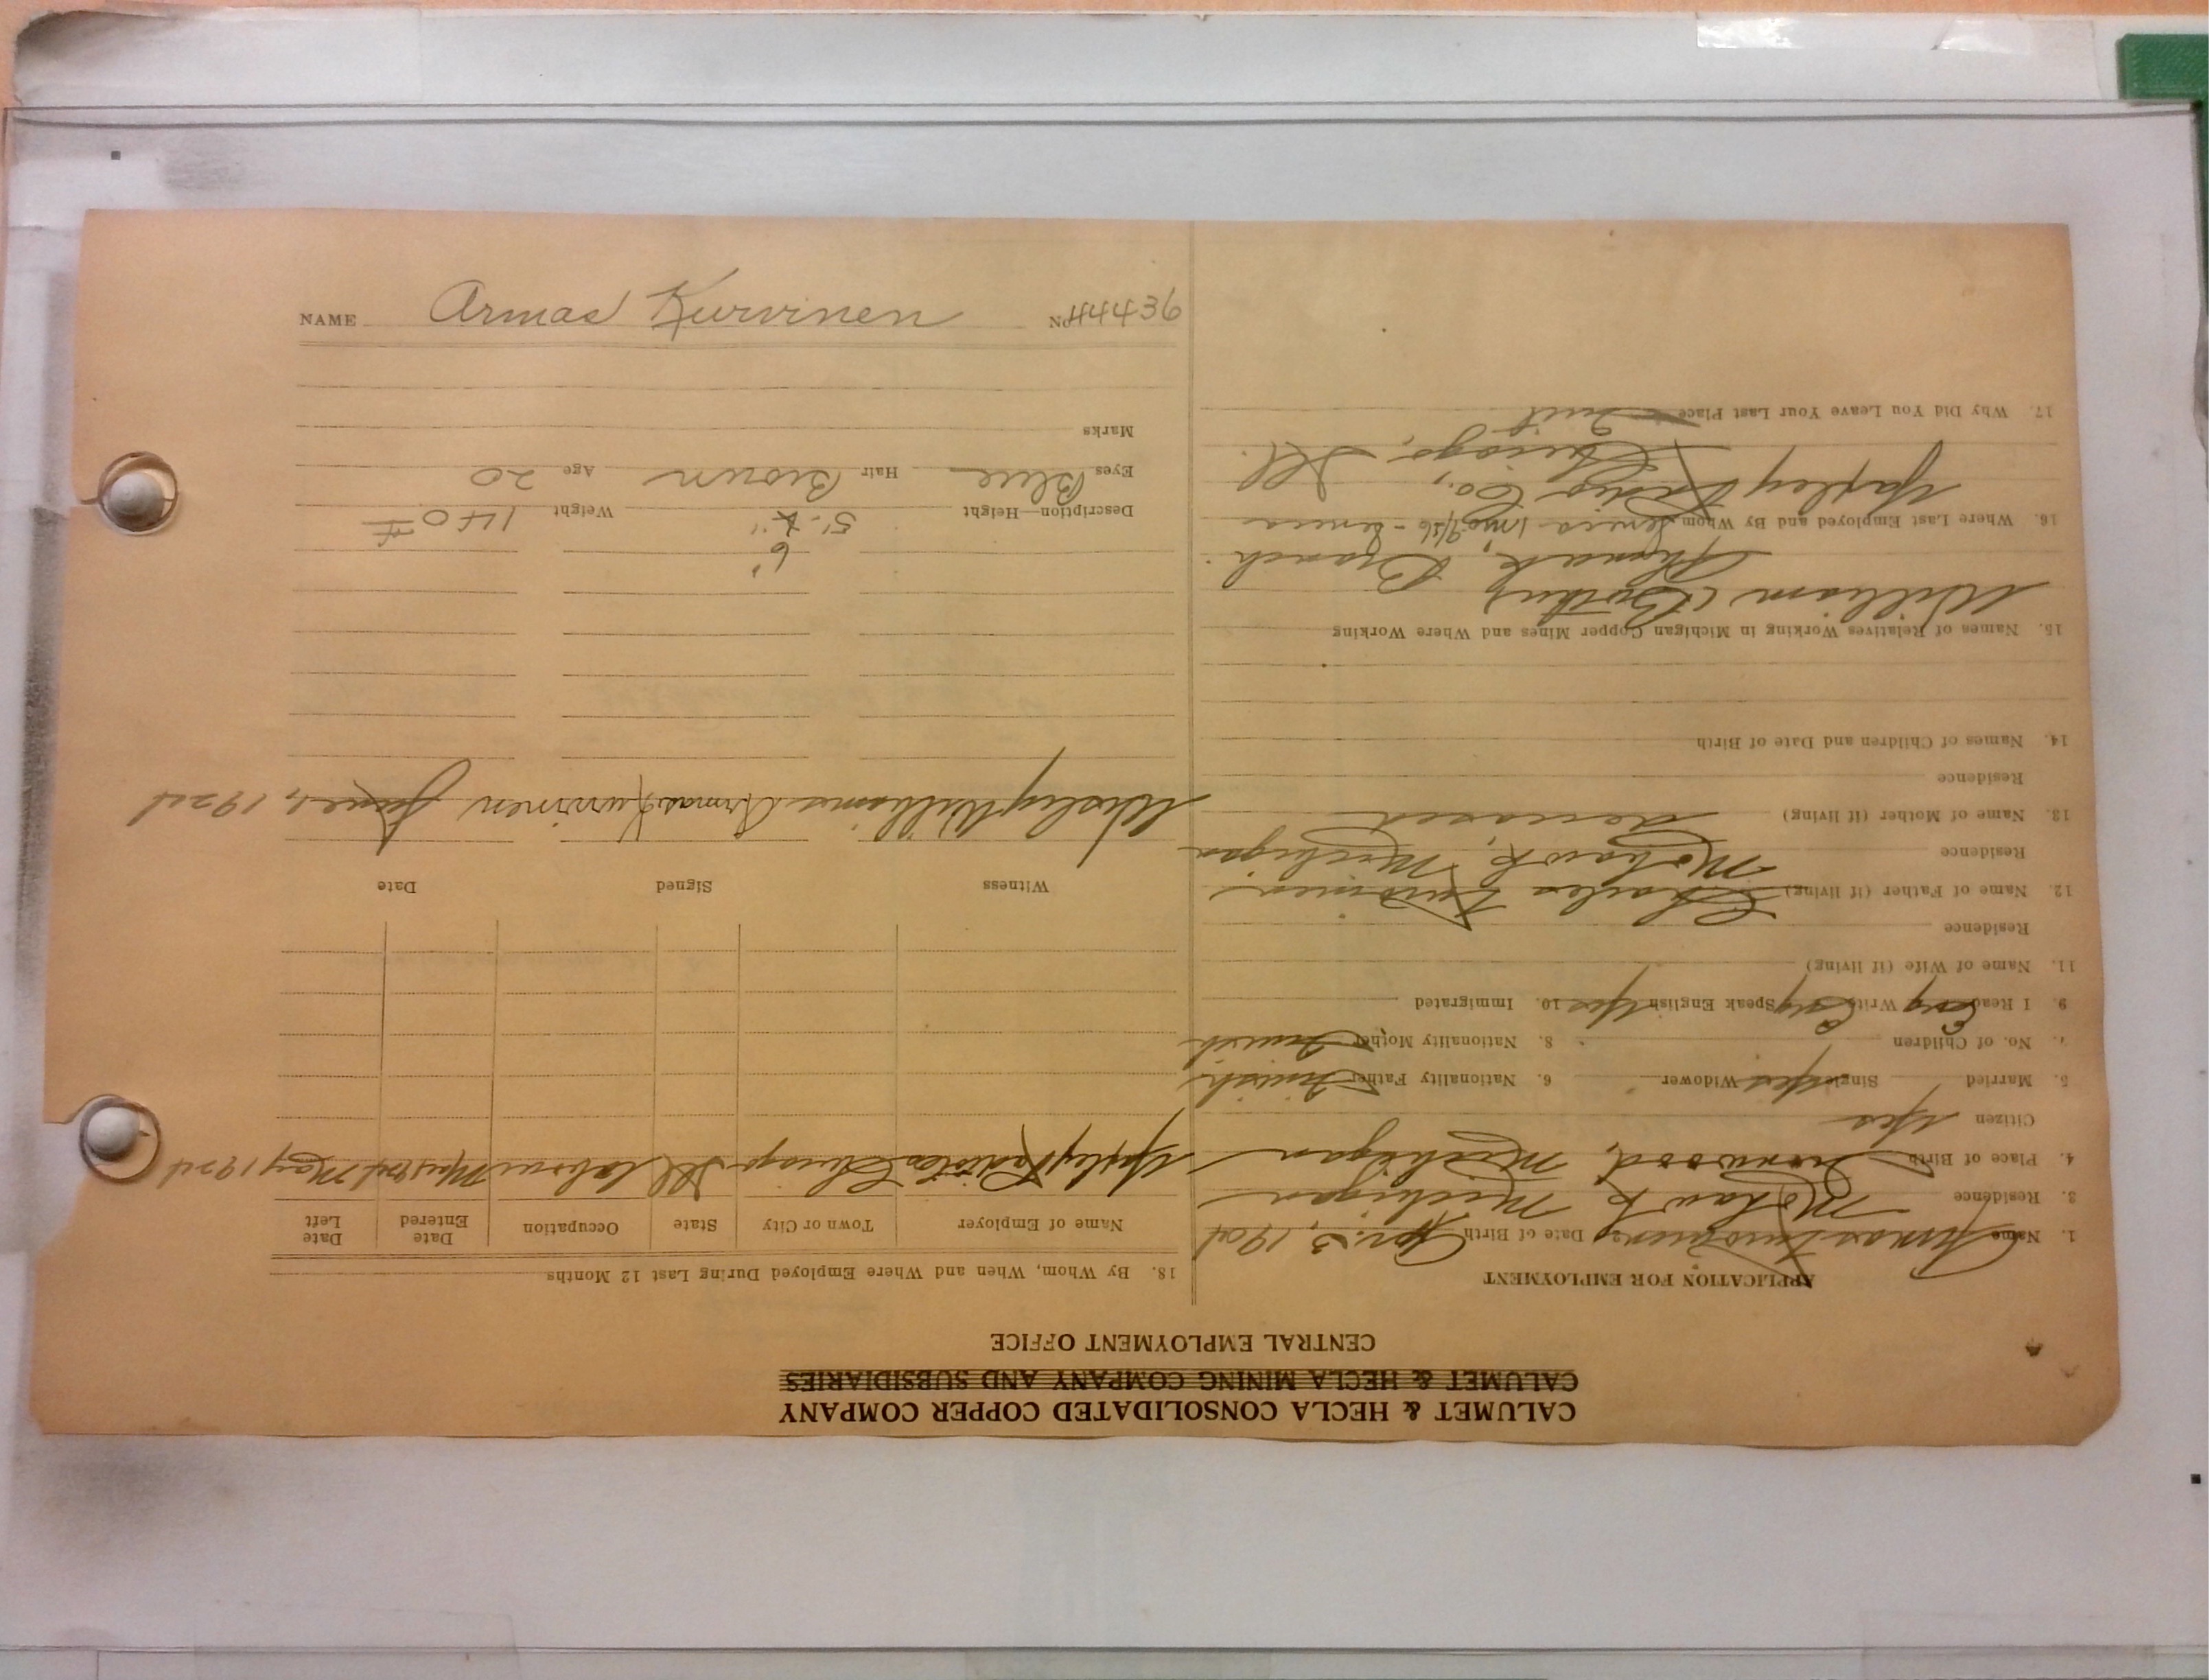 CALUMET & HECLA CONSOLIDATED COPPER COMPANY
CALUMET & HECLA MINING COMPANY AND SUBSIDIARIES
CENTRAL EMPLOYMENT OFFICE
APPLICATION FOR EMPLOYMENT
1. Name Armas Kurvinen 2. Date of Birth 3, 1904
3. Residence Mohawk Michigan
4. Place of Birth Ironwood, Michigan
Citizen Yes
5. Married Single Yes Widower 6. Nationality Father Finnish
7. No. of Children 8. Nationality Mother Finnish
9. I Read Eng Write Eng Speak English Yes 10. Immigrated
11. Name of Wife (if living)
Residence
12. Name of Father (if living) Charles Kurvinen
Residence Mohawk, Michigan
13. Name of Mother (if living) deceased
Residence
14. Names of Children and Date of Birth
15. Names of Relatives Working in Michigan Copper Mines and Where Working
William (Brother)
Ahmeek, Branch
16. Where Last Employed and By Whom Seneca 1 mo
Yaxley Co.,
Chicago, Ill.
17. Why Did You Leave Your Last Place Quit
18. By Whom, When and Where Employed During Last 12 Months
Name of Employer Town or City State Occupation Date Entered Date Left
Yaxley Chicago Ill Labour May 1924
Witness Signed Date
Wesley Williams Armas Kurvinen June 1924
6"
Description—Height 5'- Weight 140 #
Eyes Blue Hair Brown Age 20
Marks
NAME Armas Kurvinen No. 44436